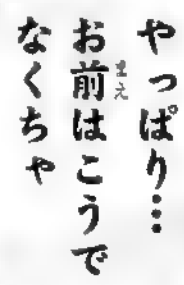 やっぱり…
お前はこうで
なくちゃ